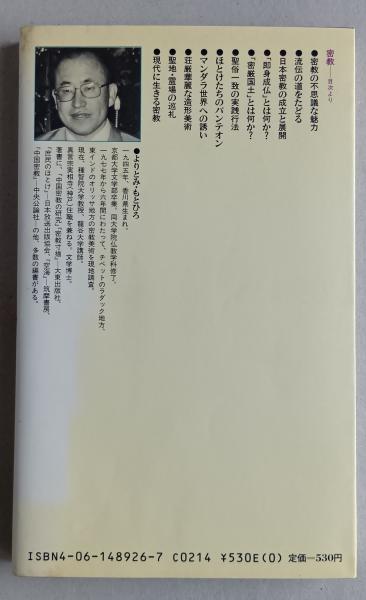 密教──目次より
●密教の不思議な魅力
●流伝の道をたどる
●日本密教の成立と展開
●「即身成仏」とは何か?
●「密厳国土」とは何か?
●聖俗一致の実践行法
●ほとけたちのパンテオン
●マンダラ世界への誘い
●荘厳華麗な造形美術
●聖地・霊場の巡礼
●現代に生きる密教
●よりとみ・もとひろ
一九四五年、香川県生まれ。
京都大学文学部卒業、同大学院仏教学科修了。
一九七七年から六年間にわたって、チベットのラダック地方、
東インドのオリッサ地方の密教美術を現地調査。
現在、種智院大学教授、龍谷大学講師。
真言宗実相寺(神戸)住職を兼ねる。文学博士。
著書に、『中国密教の研究』『密教寸描』──大東出版社、
『庶民のほとけ』──日本放送出版協会、『空海』──筑摩書房、
『中国密教』──中央公論社──の他、多数の編著がある。
ISBN4-06-148926-7 C0214 ¥530E(0) 定価=530円